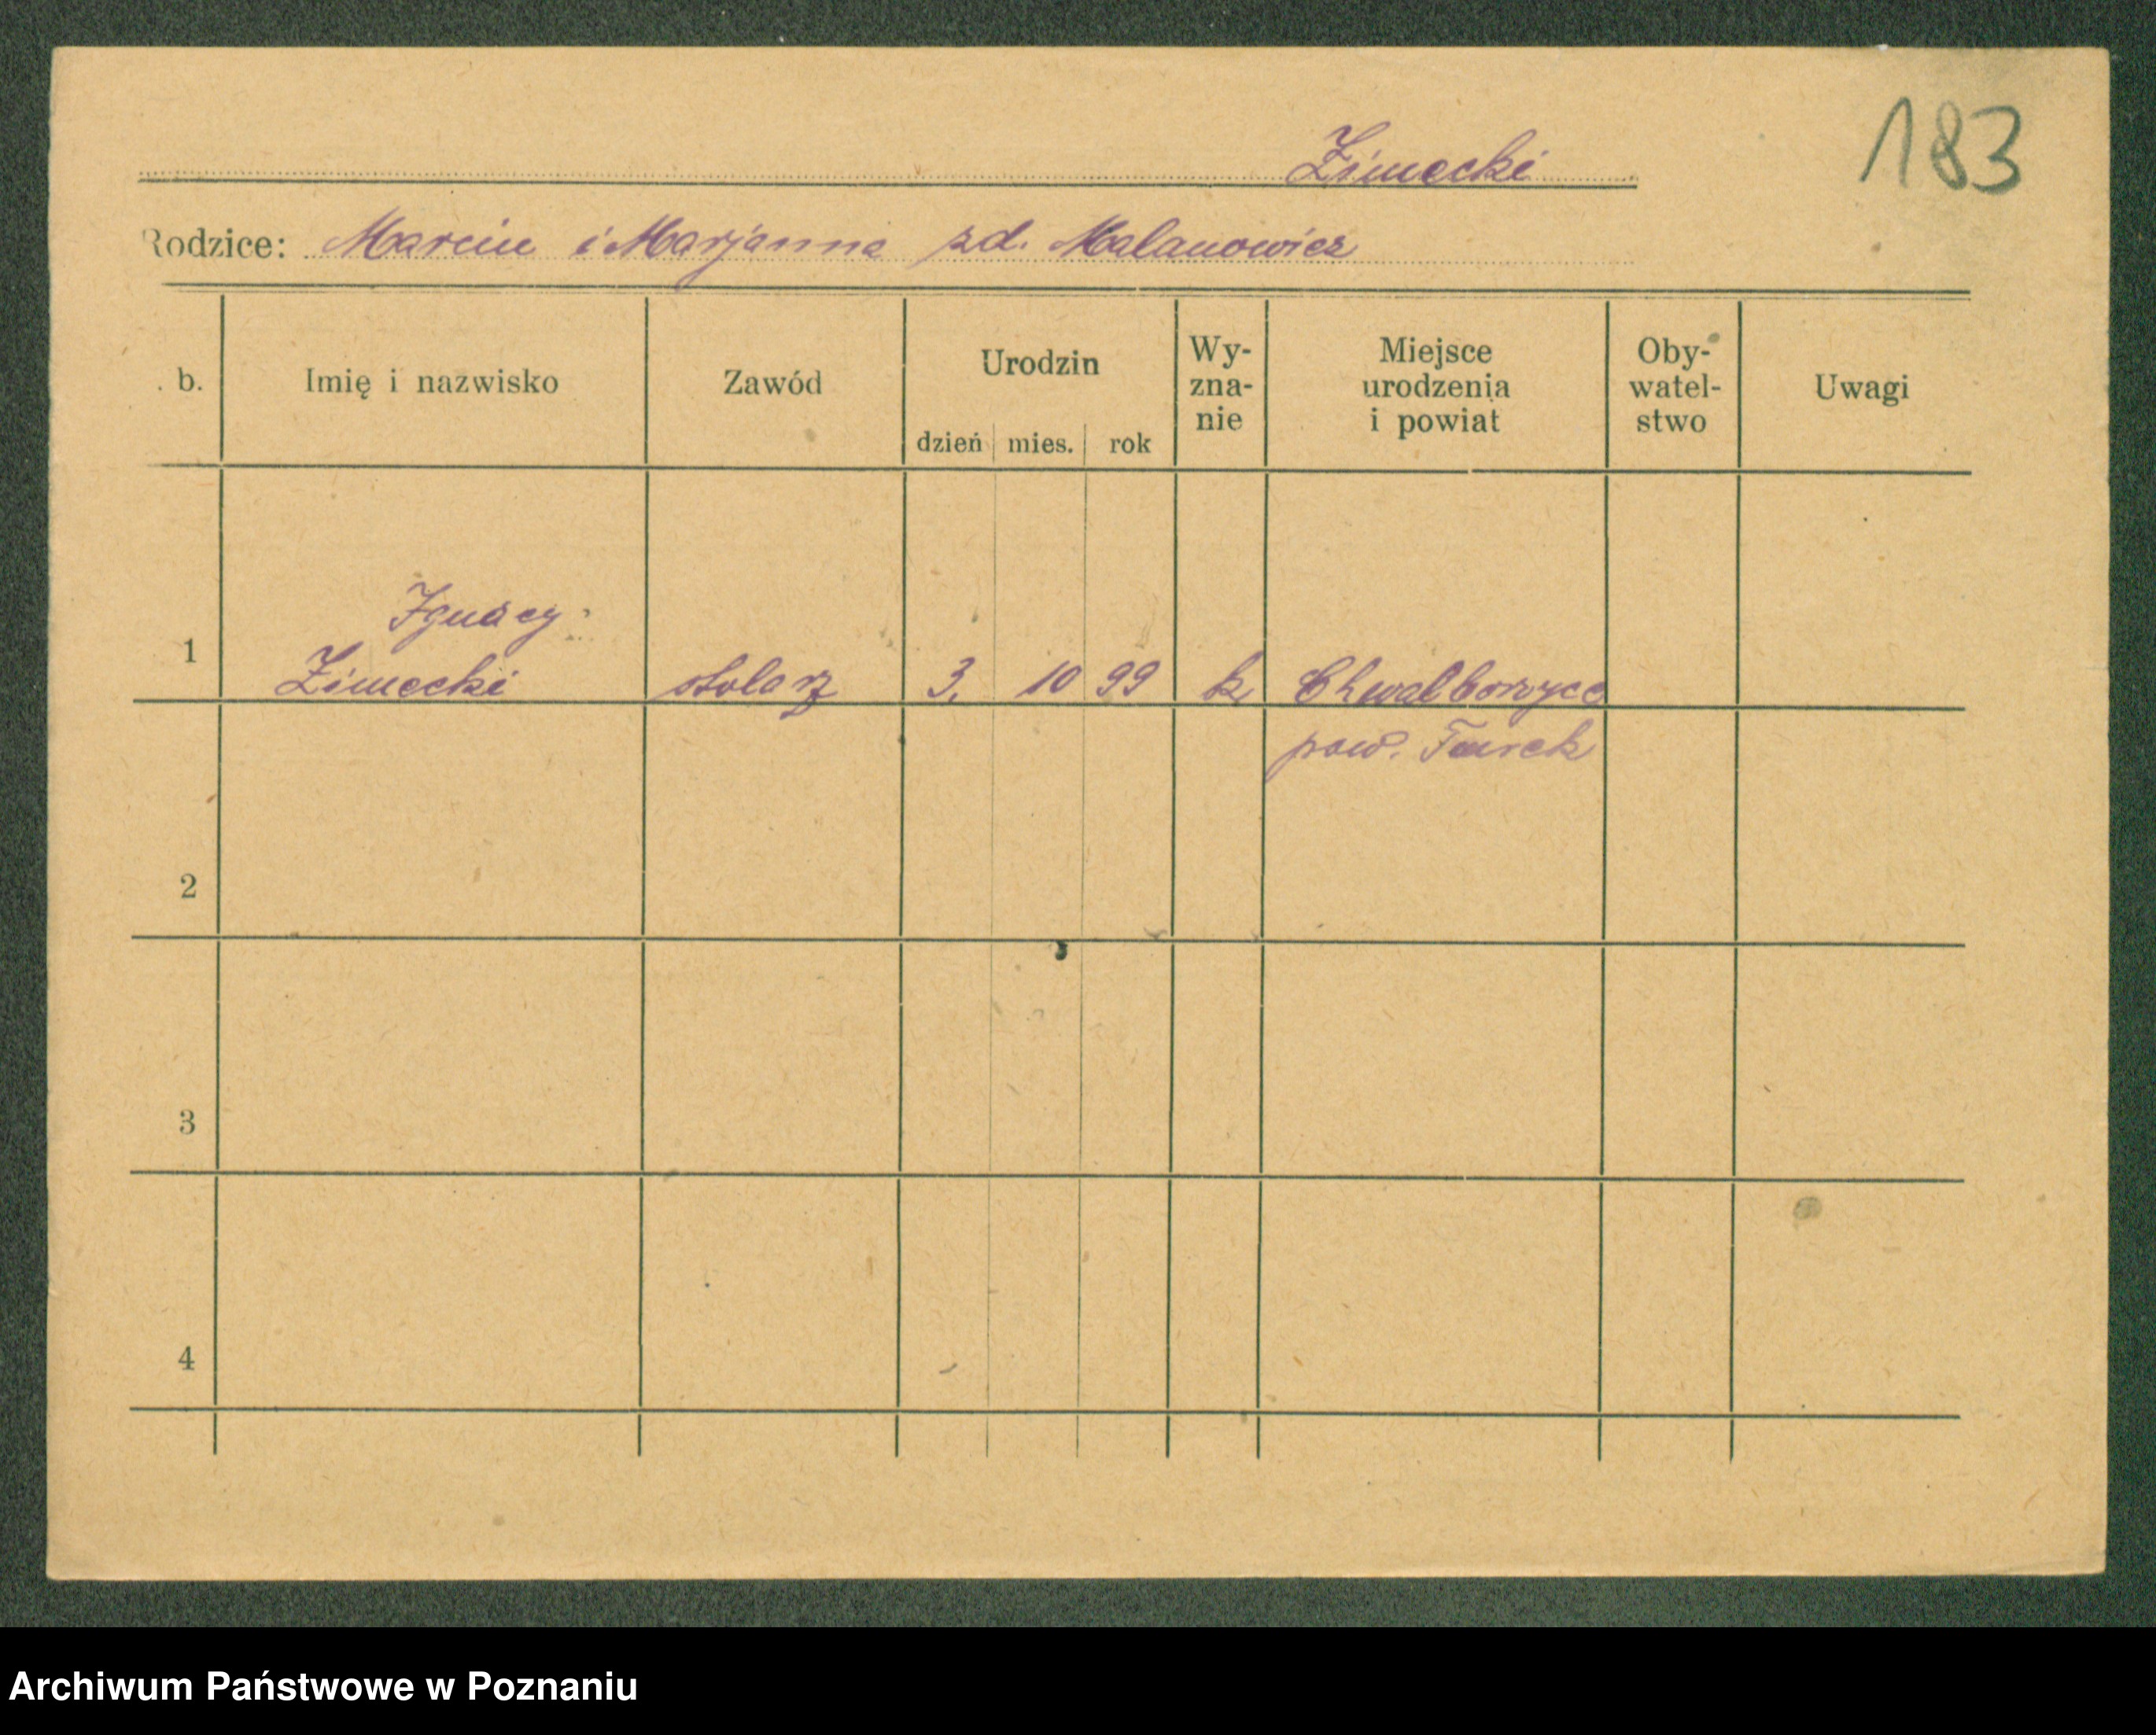 183
Zimecki
Rodzice: Marcin i Marjanna zd. Malanowicz
. b.
Imię i nazwisko
Zawód
Urodzin
dzień mies. rok
Wy-
zna-
nie
Miejsce
urodzenia
i powiat
Oby-
watel-
stwo
Uwagi
1
Ignacy
Zimecki stolarz 3. 10 99 k Chwalborzyce
pow. Turek
2
3
4
Archiwum Państwowe w Poznaniu